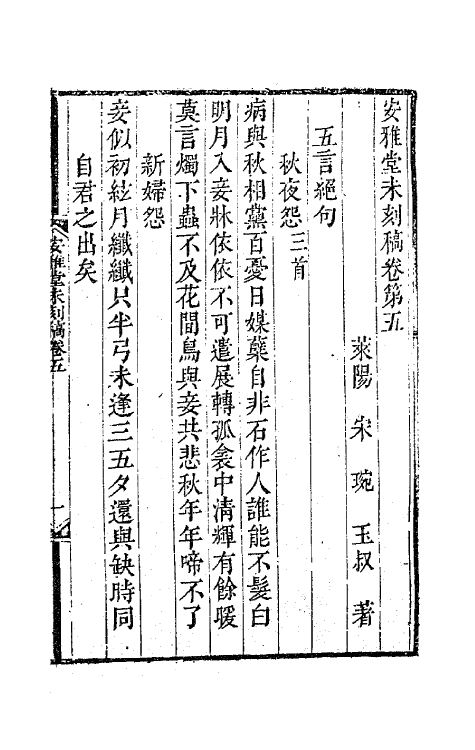 安雅堂未刻稿卷第五
萊陽 宋 琬 玉叔 著
五言絕句
秋夜怨三首
病與秋相黨百憂日媒蘖自非石作人誰能不髮白
明月入妾牀依依不可遣展轉孤衾中清輝有餘暖
莫言燭下蟲不及花間鳥與妾共悲秋年年啼不了
新婦怨
妾似初絃月纖纖只半弓未逢三五夕還與缺時同
自君之出矣
安雅堂未刻稿卷五
一